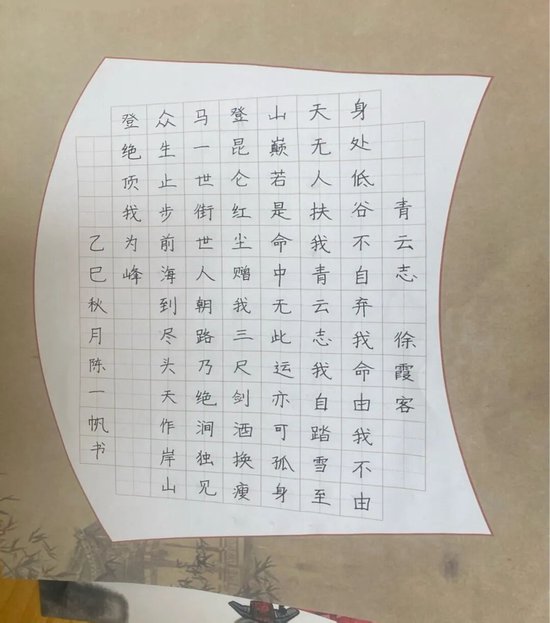 青云志 徐霞客
身处低谷不自弃我命由我不由
天无人扶我青云志我自踏雪至
山巅若是命中无此运亦可孤身
登昆仑红尘赠我三尺剑酒换瘦
马一世街世人朝路乃绝涧独见
众生止步前海到尽头天作岸山
登绝顶我为峰
乙巳秋月陈一帆书